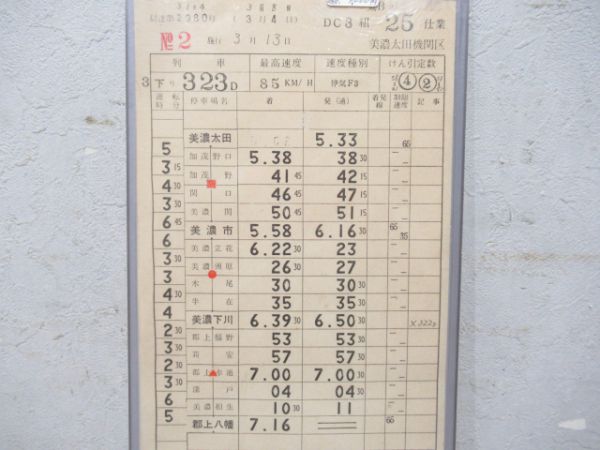 DC8組 25 仕業
No 2 施行 3月13日 美濃太田機関区
列車 最高速度 速度種別 けん引定数
3 下り 323D 85 KM/H 停気F3 ④ ②
運転時分 停車場名 着 発(通) 着発線 制限速度 記事
美濃太田 5.33 65
5 加茂野口 5.38 38 30
3 15 加茂野 41 45 42 15
4 30 関口 46 45 47 15
3 30 美濃関 50 45 51 15
6 45 美濃市 5.58 6.16 30 65 35
6 美濃立花 6.22 30 23
3 30 美濃洲原 26 30 27
3 木尾 30 30 30
4 30 半在 35 35 30
4 美濃下川 6.39 30 6.50 30
2 30 郡上福野 53 53 30
3 30 苅安 57 57 30
2 30 7.00 7.00 30
3 30 深戸 04 04 30
6 美濃相生 10 30 11
5 郡上八幡 7.16 65